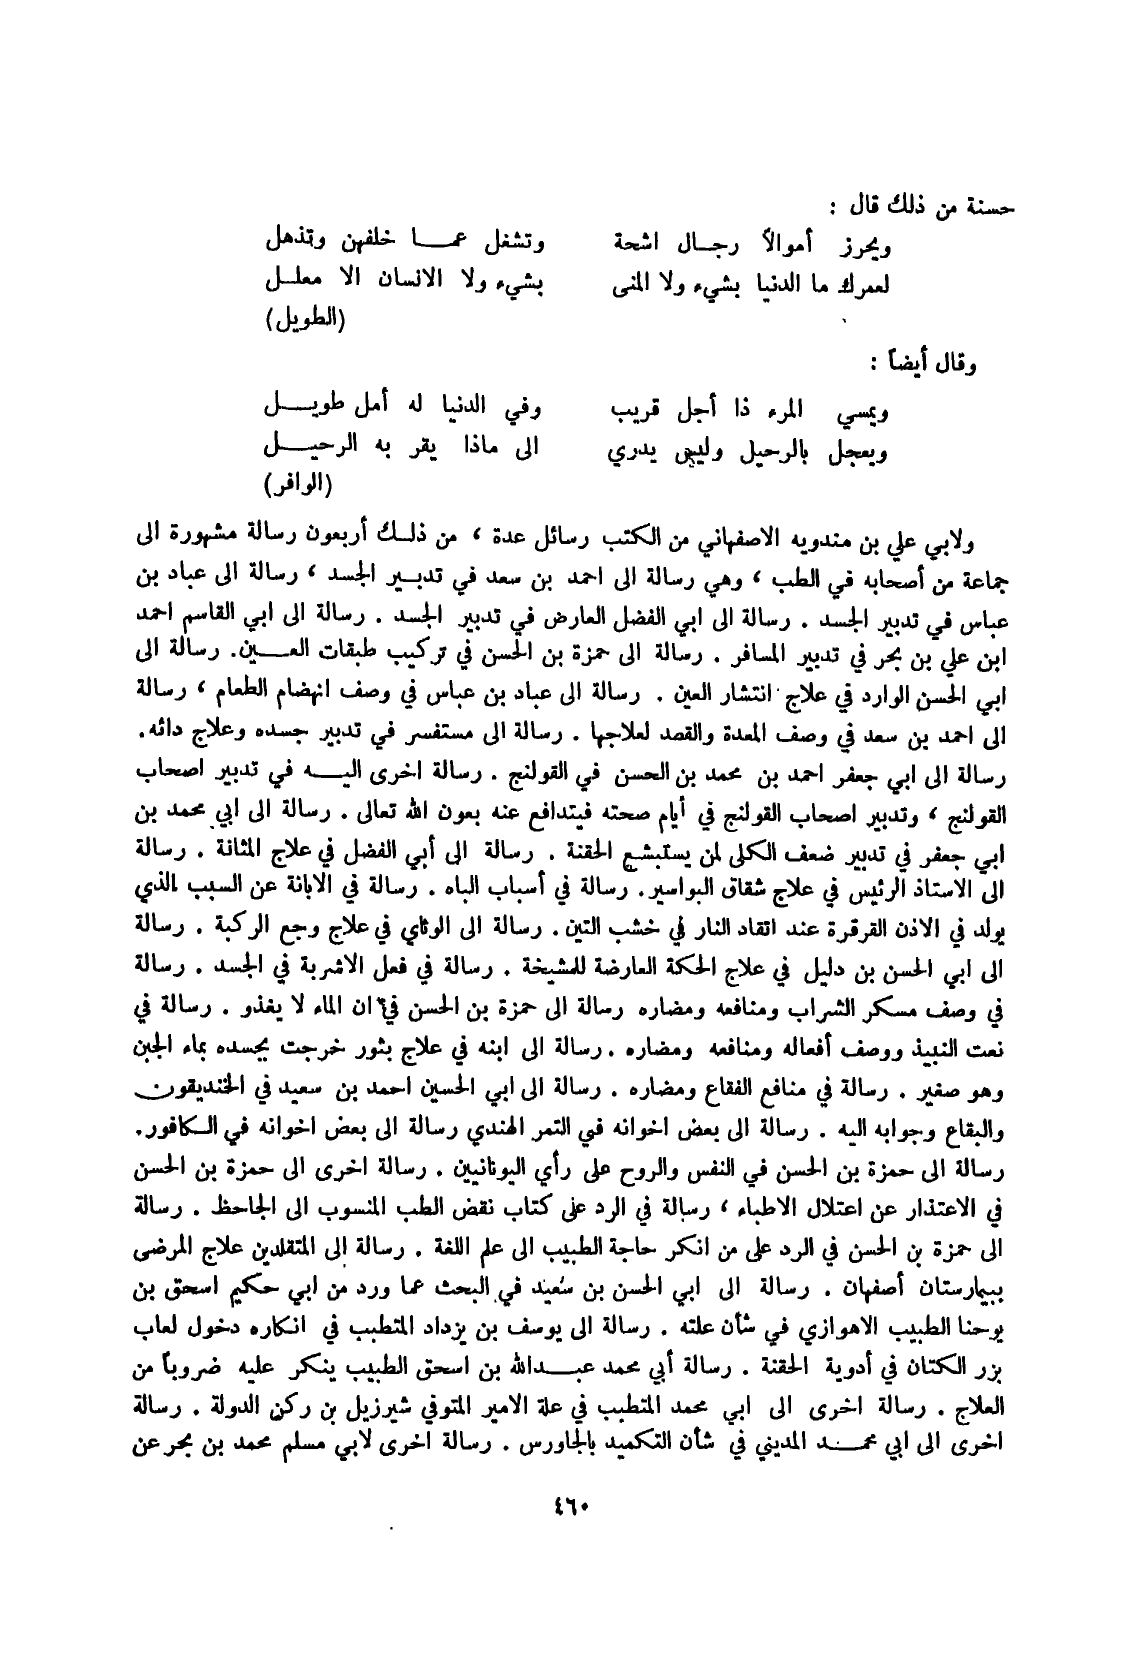 حسنة من ذلك قال :
ويحرز أموالاً رجـال اشحة وتشغل عمـــا خلفهن وتذهل
لعمرك ما الدنيا بشيء ولا المنى بشيء ولا الانسان الا معلـل
(الطويل)
وقال أيضاً :
ويمسي المرء ذا أجل قريب وفي الدنيا له أمل طويـــل
ويعجل بالرحيل وليس يدري الى ماذا يقر به الرحيـــل
(الوافر)
ولابي علي بن مندويه الاصفهاني من الكتب رسائل عدة ، من ذلـك أربعون رسالة مشهورة الى
جماعة من أصحابه في الطب ، وهي رسالة الى احمد بن سعد في تدبـير الجسد ، رسالة الى عباد بن
عباس في تدبير الجسد . رسالة الى ابي الفضل العارض في تدبير الجسد . رسالة الى ابي القاسم احمد
ابن علي بن بحر في تدبير المسافر . رسالة الى حمزة بن الحسن في تركيب طبقات العـــين. رسالة الى
ابي الحسن الوارد في علاج انتشار العين . رسالة الى عباد بن عباس في وصف انهضام الطعام ، رسالة
الى احمد بن سعد في وصف المعدة والقصد لعلاجها . رسالة الى مستفسر في تدبير جسده وعلاج دائه.
رسالة الى ابي جعفر احمد بن محمد بن الحسن في القولنج . رسالة اخرى اليـــه في تدبير اصحاب
القولنج ، وتدبير اصحاب القولنج في أيام صحته فيتدافع عنه بعون الله تعالى . رسالة الى ابي محمد بن
ابي جعفر في تدبير ضعف الكلى لمن يستبشع الحقنة . رسالة الى أبي الفضل في علاج المثانة . رسالة
الى الاستاذ الرئيس في علاج شقاق البواسير. رسالة في أسباب الباه . رسالة في الابانة عن السبب الذي
يولد في الاذن القرقرة عند اتقاد النار في خشب التين. رسالة الى الوثاي في علاج وجع الركبة . رسالة
الى ابي الحسن بن دليل في علاج الحكة العارضة للمشيخة . رسالة في فعل الاشربة في الجسد . رسالة
في وصف مسكر الشراب ومنافعه ومضاره رسالة الى حمزة بن الحسن في ان الماء لا يغذو . رسالة في
نعت النبيذ ووصف أفعاله ومنافعه ومضاره . رسالة الى ابنه في علاج بثور خرجت بجسده بماء الجبن
وهو صغير . رسالة في منافع الفقاع ومضاره . رسالة الى ابي الحسين احمد بن سعيد في الخنديقون
والبقاع وجوابه اليه . رسالة الى بعض اخوانه في التمر الهندي رسالة الى بعض اخوانه في الـكافور.
رسالة الى حمزة بن الحسن في النفس والروح على رأي اليونانيين . رسالة اخرى الى حمزة بن الحسن
في الاعتذار عن اعتلال الاطباء ، رسالة في الرد على كتاب نقض الطب المنسوب الى الجاحظ . رسالة
الى حمزة بن الحسن في الرد على من انكر حاجة الطبيب الى علم اللغة . رسالة الى المتقلدين علاج المرضى
ببيمارستان أصفهان . رسالة الى ابي الحسن بن سُعيد في البحث عما ورد من ابي حكيم اسحق بن
يوحنا الطبيب الاهوازي في شأن علته . رسالة الى يوسف بن يزداد المتطبب في انكاره دخول لعاب
بزر الكتان في أدوية الحقنة . رسالة أبي محمد عبــدالله بن اسحق الطبيب ينكر عليه ضروباً من
العلاج . رسالة اخرى الى ابي محمد المتطبب في علة الامير المتوفي شيرزيل بن ركن الدولة . رسالة
اخرى الى ابي محمــد المديني في شأن التكميد بالجاورس . رسالة اخرى لابي مسلم محمد بن بحر عن
٤٦٠